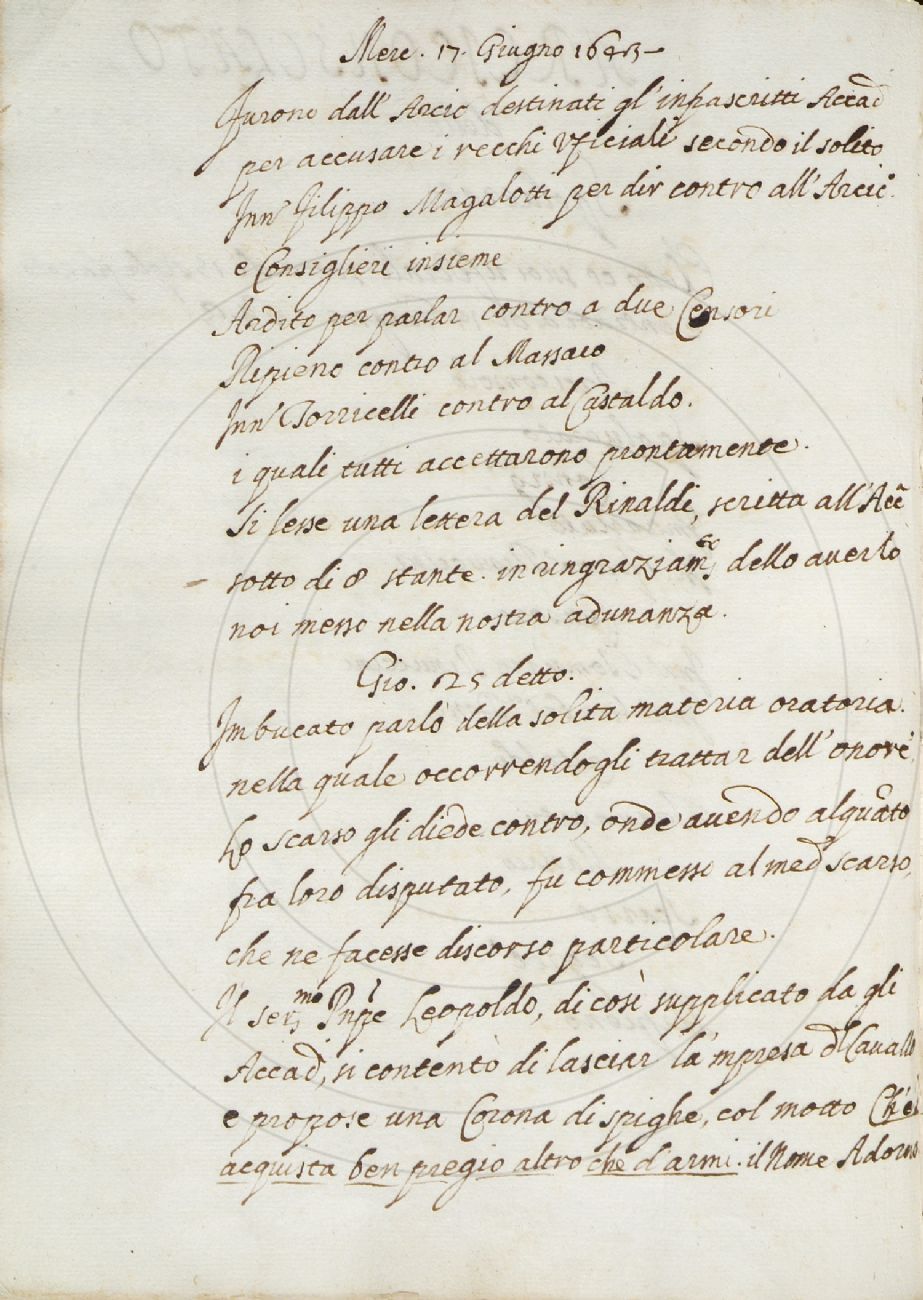 Merc. 17. Giugno 1643
Furono dall' Arcic destinati gl' infrascritti Accad
per accusare i vecchi Vficiali secondo il solito
Inn° Filippo Magalotti per dir contro all' Arcic°.
e Consiglieri insieme
Ardito per parlar contro a due Censori
Ripieno contro al Massaio
Inn° Torricelli contro al Castaldo.
i quali tutti accettarono prontamente.
Si lesse una lettera del Rinaldi, scritta all' Acc
sotto di 8 stante. in ringraziam.to dello averlo
noi messo nella nostra adunanza.
Gio. 25 detto.
Imbucato parlo della solita materia oratoria.
nella quale occorrendogli trattar dell' onore,
Lo scarso gli diede contro, onde avendo alquāto
fra loro disputato, fu commesso al med° scarso,
che ne facesse discorso particolare.
Il ser.mo Pnpe Leopoldo, di così supplicato da gli
Accad, si contentò di lasciar la 'mpresa dl Cavallo
e propose una Corona di spighe, col motto Ch' el
acquista ben pregio altro che d' armi. il Nome